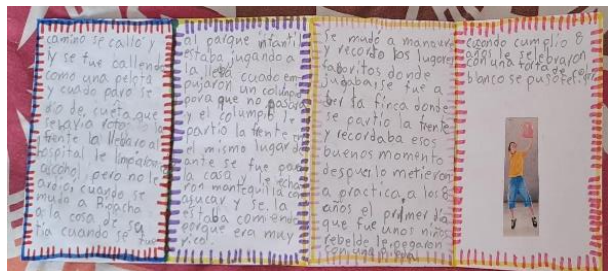 camino se callo y
y se fue callendo
como una pelota
y cuado paro se
dio de cueta que
se bavia roto la
frente la llebaro al
hospital le limpiaron
alcohol, pero no le
ardio, cuando se
mudo a Rioacha
a la casa de su
tia cuando se fue
al parque infanti
estaba jugando a
la lleba cuado em-
pujaron un columpio
para que no pasara
y el columpio le
partio la frente en
el mismo lugar de
ante se fue para
la casa y le echa
ron mantequilla con
asucar y se la
estaba comiendo
porque era muy
rico.
se mudó a manaure
y recorto los lugares
faboritos donde
jugaba, se fue a
ber la finca donde
se partio la frente
y recordaba esos
buenos momento
despues lo metieron
a practica, a los 8
años el primer dia
que fue unos niños
rebelde le pegaron
con una
cuando cumplio 8
años le selebraron
con una torta de color
blanco se puso feliz